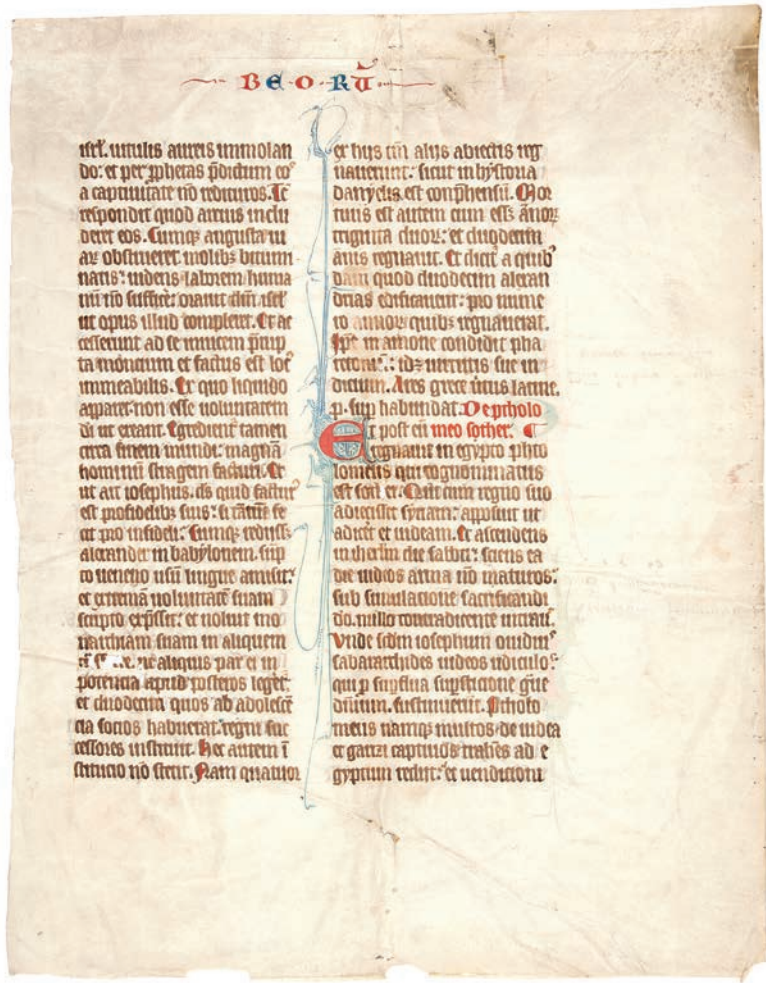 B E O R Ū
isrl. uitulis aureis immolan
do: et per ꝓphetas p̄dictum eoꝰ
a captiuitate nō redituros. Tc̄
respondit quod artius inclu
deret eos. Cumqꝫ angusta ui
aꝝ obstrueret molibꝫ bitumi
natis: uidens laborem huma
nū nō sufficē: orauit dm̄ isrl̓
ut opus illud compleret. Et ac
cesserunt ad se inuicem p̄rup
ta montium et factus est locꝰ
immeabilis. Ex quo liquido
apparet non esse uoluntatem
di ut exeant. Egredient̄ tamen
circa finem mundi: magnā
hominū stragem facturi. Et
ut ait iosephus. ds̄ quid facturꝰ
est profidelibꝫ suis: si tātum fe
cit pro infideli. Cumqꝫ rediss̄ꝫ
alexander in babylonem. sūp
to ueneno usū lingue amisit:
et extremā uoluntatē suam
scripto exp̄ssit: et noluit mo
narchiam suam in aliquem
ne aliquis par ei in
potencia apud posteros leget̄.
et duodecim quos ab adolescē
cia socios habuerat. regni suc
cessores instituit. Hec autem ī
stitucio nō stetit. Nam quatuor
ex hijs tm̄ alijs abiectis reg
nauerunt: sicut in hystoria
danyelis est conp̄hensū. Mor
tuus est autem cum ess̄ꝫ ānoꝝ
triginta duoꝝ: et duodecim
annis regnauit. Et dicit̄ a quibꝰ
dam quod duodecim alexan
drias edificauerit: pro nume
ro annoꝝ quibꝫ regnauerat.
Ip̄e in amone condidit pha
retoniū: idꝫ uirtutis sue in
dicium. Ares grece uirtus latine.
p. sup̄ habundat. De ptholo
Et post eū meo sother.
regnauit in egypto ptho
lomeus qui cognominatus
est soth er. Qui cum regno suo
adiecisset syriam: apposuit ut
adic̄et et iudeam. Et ascendens
in ihrlm̄ die sabbti: sciens ea
die iudeos arma nō maturos:
sub simulacione sacrificandi
dō. nullo contradicente intrauit.
Vnde scdm̄ iosephum
iudeos
qui ꝑ supflua supsticione
diuium. sustinuerit. Ptholo
meus namqꝫ multos de iudea
et garizi captiuos trahēs ad e
gyptum rediit: et uendicioni